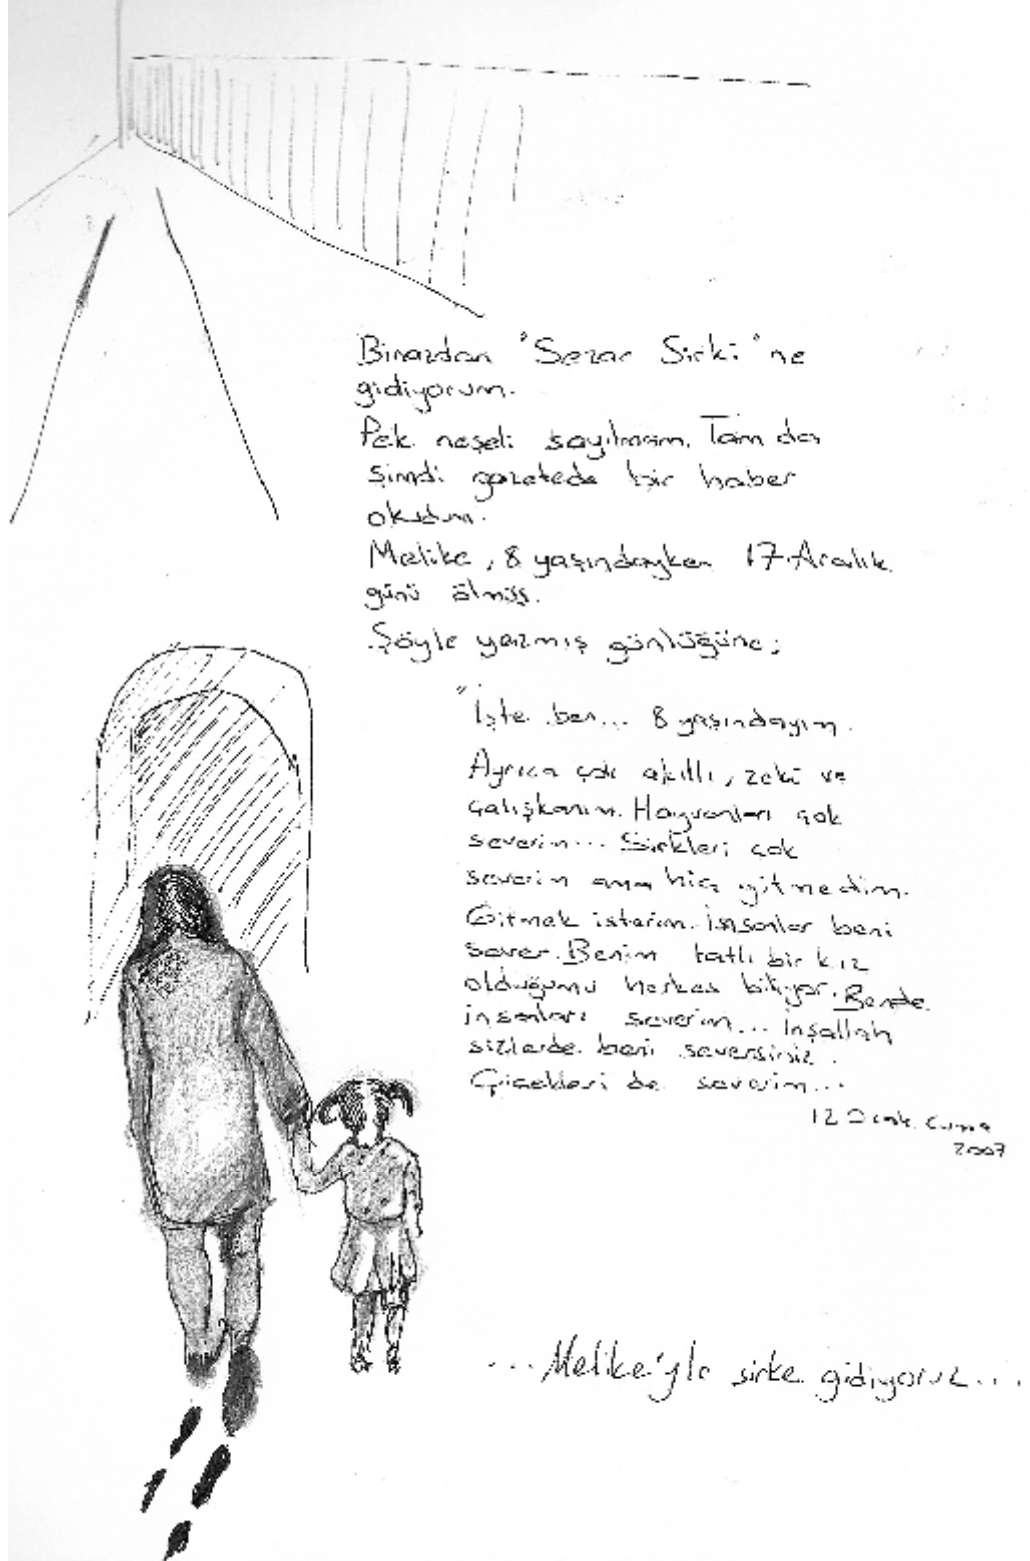 Birazdan "Sezar Sirki" ne
gidiyorum.
Pek neşeli sayılmam. Tam da
şimdi gazetede bir haber
okudum.
Melike, 8 yaşındayken 17 Aralık
günü ölmüş.
Şöyle yazmış günlüğüne;
"İşte ben... 8 yaşındayım.
Ayrıca çok akıllı, zeki ve
çalışkanım. Hayvanları çok
severim... Sirkleri çok
severim ama hiç gitmedim.
Gitmek isterim. İnsanlar beni
sever. Benim tatlı bir kız
olduğumu herkes biliyor. Bende
insanları severim... İnşallah
sizlerde beni seversiniz.
Çiçekleri de severim...
12 Ocak Cuma
2007
...Melike'yle sirke gidiyoruz...